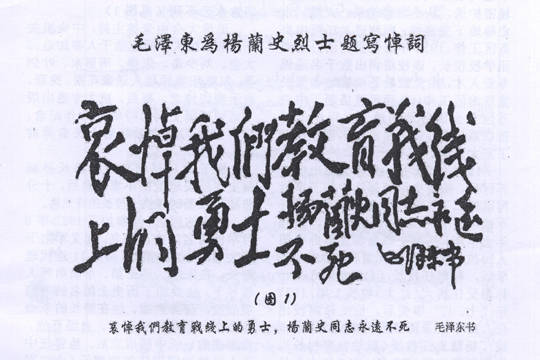 毛澤東為楊蘭史烈士題寫悼詞
哀悼我們教育戰线
上的勇士楊蘭史同志永遠
不死 毛澤东书
(图1)
哀悼我們教育戰线上的勇士，楊蘭史同志永遠不死 毛泽东书